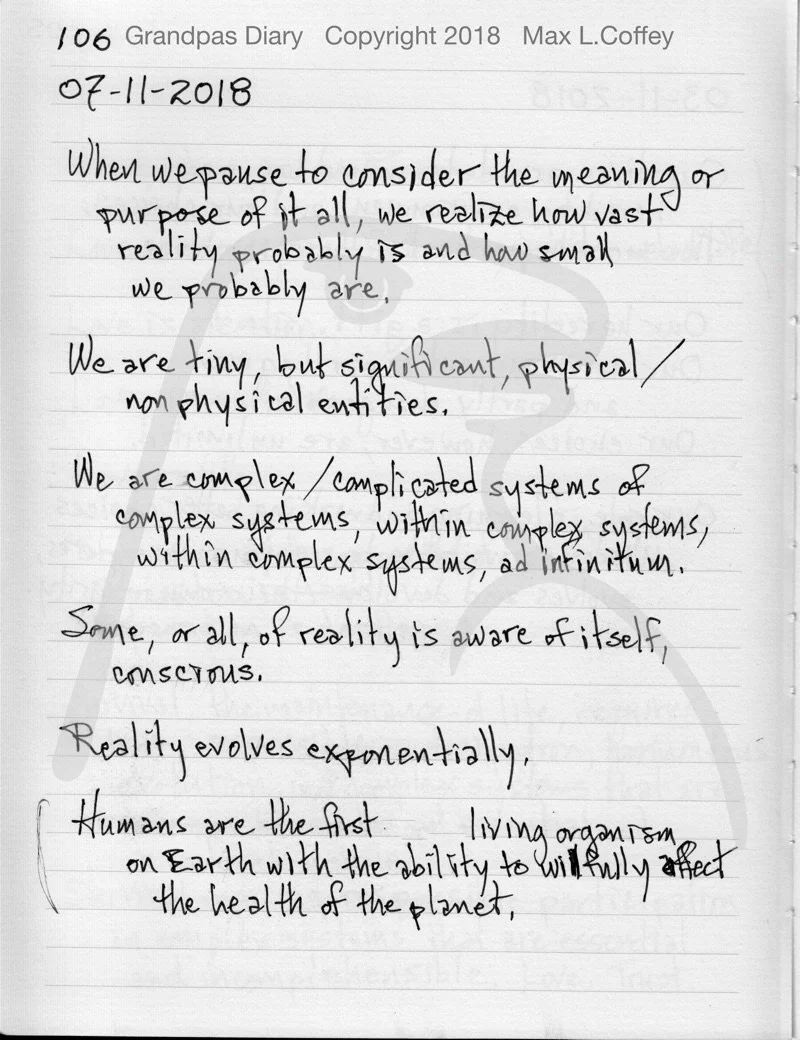 106 Grandpas Diary Copyright 2018 Max L.Coffey
07-11-2018
When we pause to consider the meaning or
purpose of it all, we realize how vast
reality probably is and how small
we probably are.
We are tiny, but significant, physical/
nonphysical entities.
We are complex/complicated systems of
complex systems, within complex systems,
within complex systems, ad infinitum.
Some, or all, of reality is aware of itself,
conscious.
Reality evolves exponentially.
Humans are the first living organism
on Earth with the ability to willfully affect
the health of the planet.